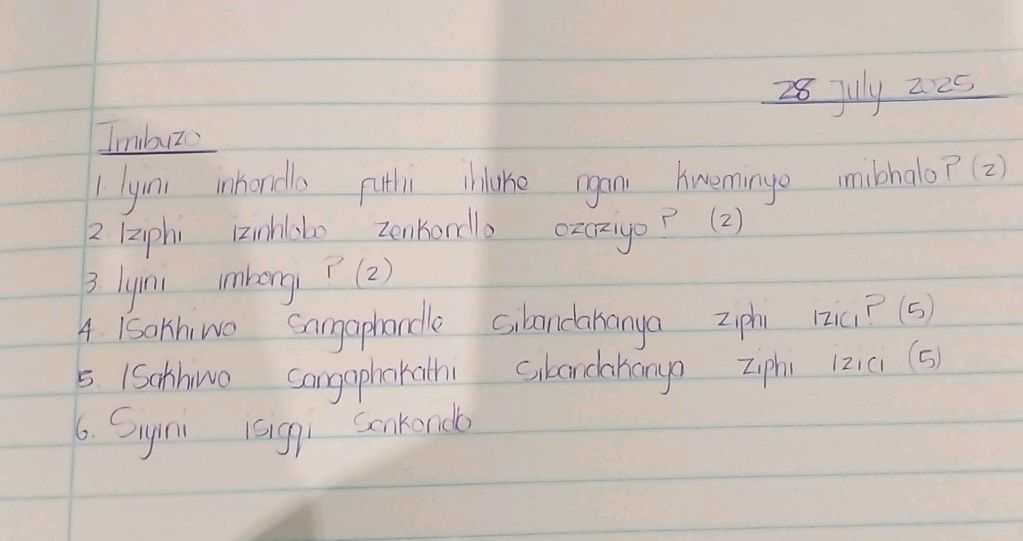 28 July 2025
Imibuzo
1. Iyini inkondlo futhi ihluke ngani kweminye imibhalo? (2)
2. Iziphi izinhlobo zenkondlo ozaziyo? (2)
3. Iyini imbongi? (2)
4. ISakhiwo Sangaphandle Sibandakanya ziphi izici? (5)
5. ISakhiwo Sangaphakathi Sibandakanya ziphi izici (5)
6. Siyini isigqi Senkondlo